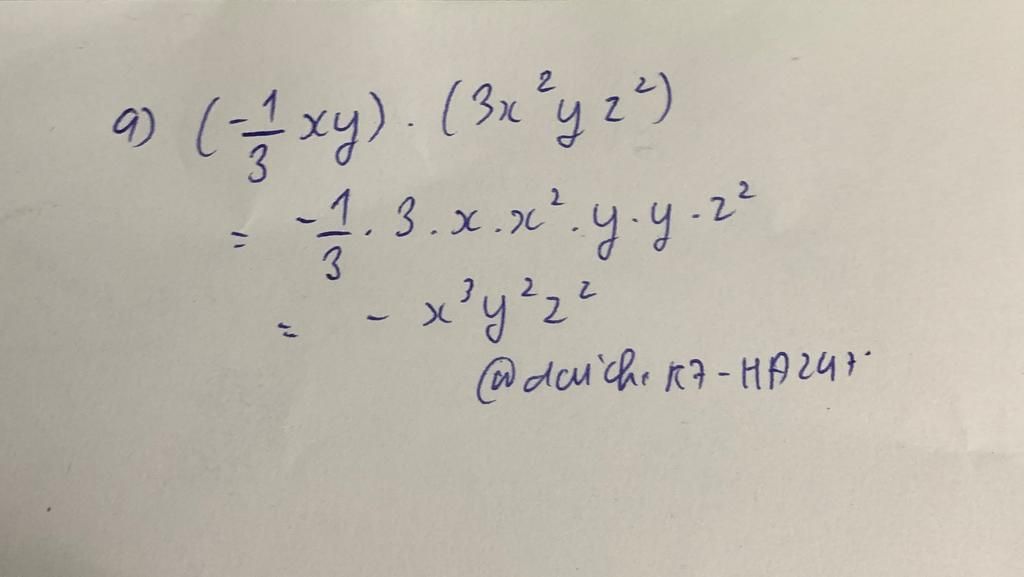 a) (-1/3 xy) . (3x²yz²)
= -1/3 . 3 . x . x² . y . y . z²
= - x³y²z²
K7-HA247